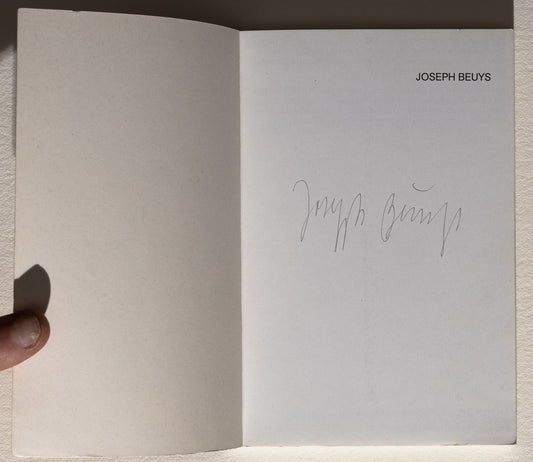 JOSEPH BEUYS
Joseph Beuys